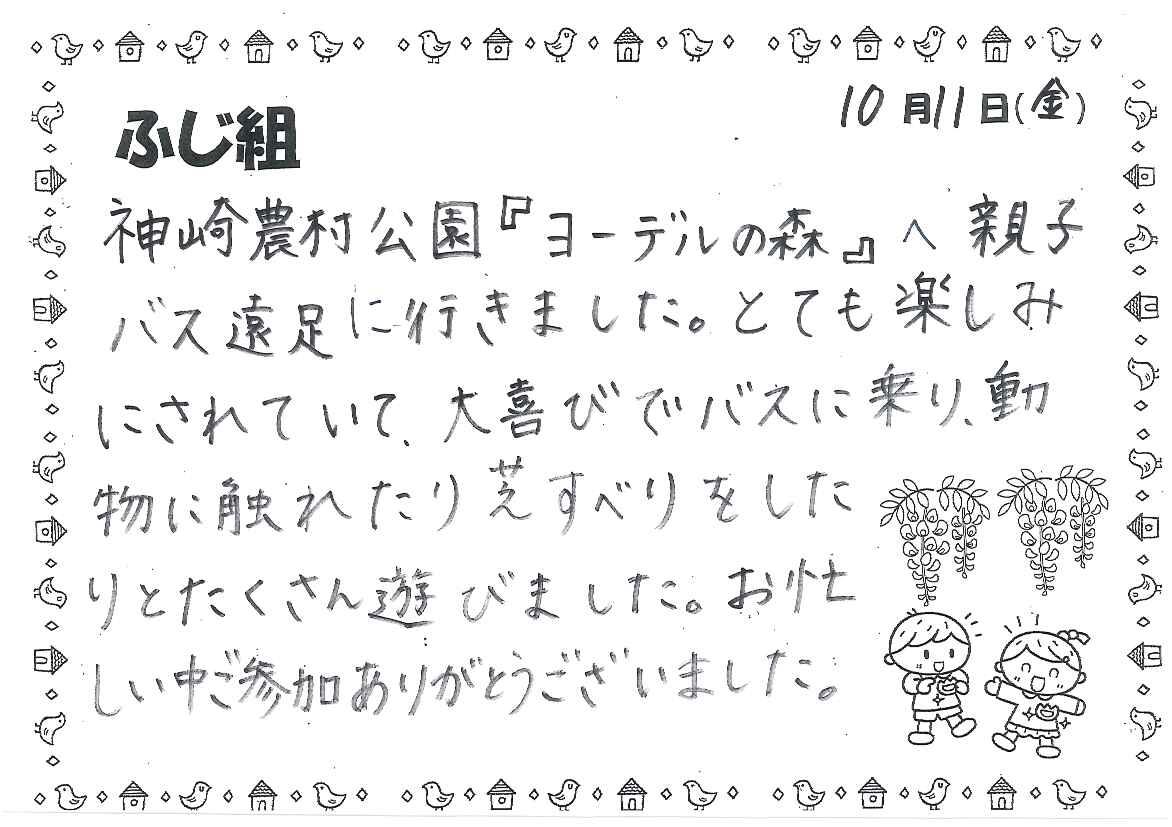 10月11日(金)
ふじ組
神崎農村公園『ヨーデルの森』へ親子
バス遠足に行きました。とても楽しみ
にされていて、大喜びでバスに乗り、動
物に触れたり芝すべりをした
りとたくさん遊びました。お忙
しい中ご参加ありがとうございました。